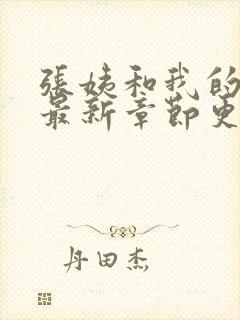 張姨和我的
最新章節更
丹田杰